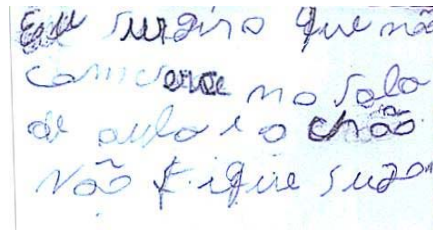 Eu surgiro que não
na sala
de aula e o chão
Não fique sujo